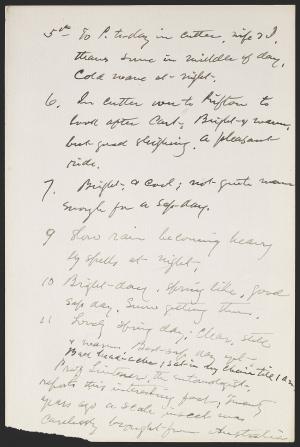 5th To P. today in cutter, wife & I,
thaws some in middle of day,
Cold wave at night.
6. In cutter over to Rifton to
look after Carl. Bright & warm,
but good sleighing. A pleasant
ride.
7. Bright & cool; not quite warm
enough for a sap-day.
9 Slow rain becoming heavy
by spells at night,
10 Bright day, spring like, good
sap day. Snow getting thin.
11 Lovely spring day, Clear, still
& warm. Best sap day yet.
Bad headache; sat in my chair till 1 a.m.
Prof. Lintner, the entomologist,
reports this interesting fact; Twenty
years ago a scale insect was
carelessly brought from Australia